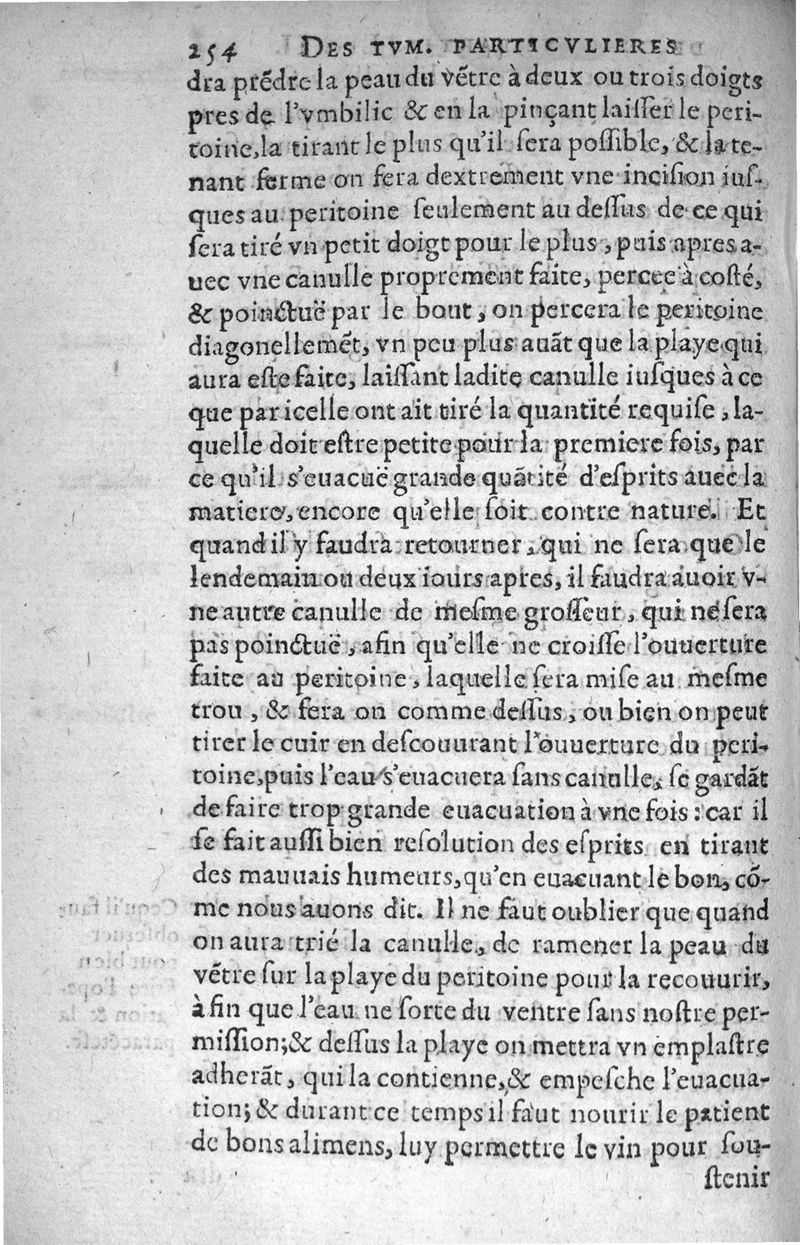 254 DES TVM. PARTICVLIERES
dra prẽdre la peau du vẽtre à deux ou trois doigts
pres de l'vmbilic & en la pinçant laiſſer le peri-
toine, la tirant le plus qu'il ſera poſſible, & la te-
nant ferme on fera dextrement vne inciſion iuſ-
ques au peritoine ſeulement au deſſus de ce qui
ſera tiré vn petit doigt pour le plus, puis apres a-
uec vne canulle proprement faite, percee à coſté,
& poinctuë par le bout, on percera le peritoine
diagonellemẽt, vn peu plus auãt que la playe qui
aura eſte faite, laiſſant ladite canulle iuſques à ce
que par icelle ont ait tiré la quantité requiſe, la-
quelle doit eſtre petite pour la premiere fois, par
ce qu'il s'euacuë grande quãtité d'eſprits auec la
matiere, encore qu'elle ſoit contre nature. Et
quand il y faudra retourner, qui ne ſera que le
lendemain ou deux iours apres, il faudra auoir v-
ne autre canulle de meſme groſſeur, qui ne ſera
pas poinctuë, afin qu'elle ne croiſſe l'ouuerture
faite au peritoine, laquelle ſera miſe au meſme
trou, & ſera on comme deſſus, ou bien on peut
tirer le cuir en deſcouurant l'ouuerture du peri-
toine, puis l'eau s'euacuera ſans canulle, ſe gardãt
de faire trop grande euacuation à vne fois: car il
ſe fait auſſi bien reſolution des eſprits en tirant
des mauuais humeurs, qu'en euacuant le bon, cõ-
me nous auons dit. Il ne faut oublier que quand
on aura trié la canulle, de ramener la peau du
vẽtre ſur la playe du peritoine pour la recouurir,
à fin que l'eau ne ſorte du ventre ſans noſtre per-
miſſion; & deſſus la playe on mettra vn emplaſtre
adherãt, qui la contienne, & empeſche l'euacua-
tion; & durant ce temps il faut nourir le patient
de bons alimens, luy permettre le vin pour ſou-
ſtenir